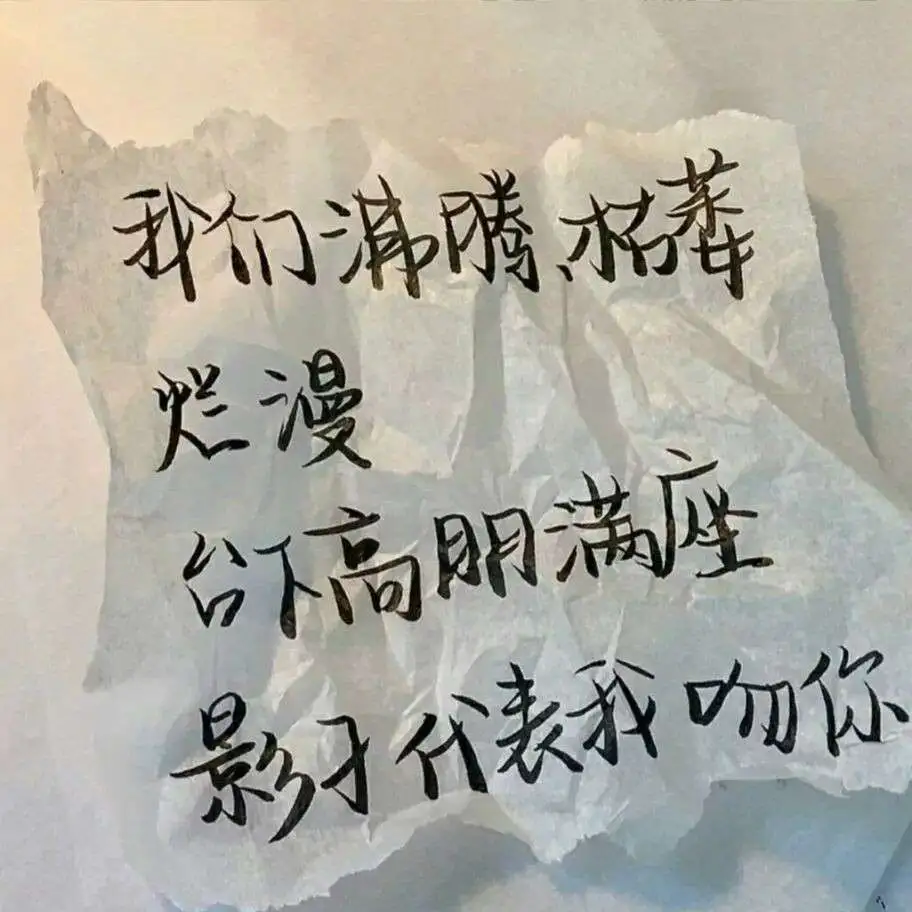 我们沸腾、枯萎
烂漫
台下高朋满座
影子代表我吻你